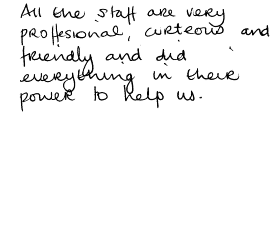 All the staff are very
proffesional, curteous and
friendly and did
everything in their
power to help us.